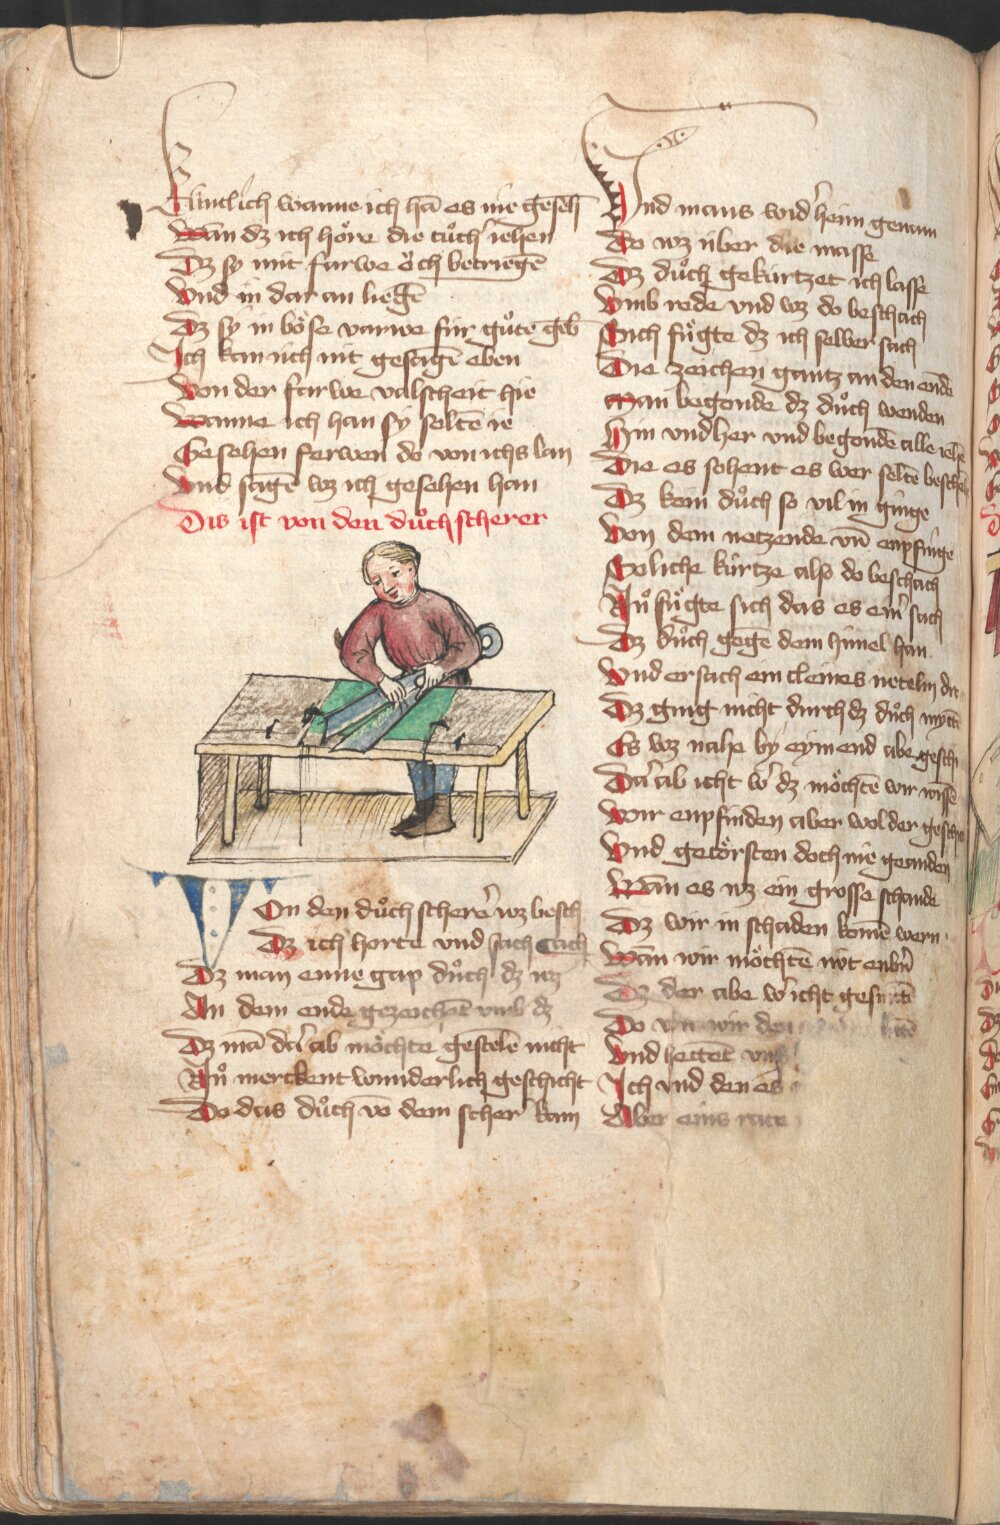 Simlich wanne ich hā es nie geseh
Wan dz ich hoͤre die tuͦch iehen
Dz sy mit farwe oͤch betriegē
Vnd in dar an liegē
Dz sy in boͤse varwe für guͦte geb
Ich kan uch nit gesagē eben
Von der farwe valscheit hie
Wanne ich han sy seltē ie
Gesehen ferwen do von ichs lan
Vnd sagē wz ich gesehen han
Dis ist von den duͦch scherer
On den duͦch scherē wz besch
Dz ich horte vnd sach
Dz man eime gap duͦch dz wz
An dem ende gezeichēt vmb dz
Dz mā da ab moͤchte gestelē nicht
Nuͦ merckent wunderlich geschicht
Do das duͦch vō dem scher kam
Vnd mans wid' heim genam
Do wz über die masse
Dz duͦch gekurtzet ich lasse
Vmb rede vnd wz do beschach
Sich fuͤgte dz ich selber sach
Die zeichen gantz an den ende
Man begonde dz duͦch wenden
Hin vnd her vnd begonde alle iehē
Die es sehent es wer seltē
Dz kein duͦch so vil in ginge
Von dem netzende vn̄ enpfinge
Soliche kürtze also do beschach
Nuͦ fuͤgte sich das es ein' sach
Dz duͦch gegē dem himel han
Vnd ersach ein cleines netelin
Dz ging nicht durch dz duͦch
Es wz nahe by eym end abe
Da' ab icht w' dz moͤchtē wir wissē
Wir enpfinden aber wol der
Vnd getoͤrsten doch nie geanden
Wan es wz ein grosse schande
Dz wir in schaden komē wern
Wan wir moͤchtē nit enbn̄
Dz der abe w' icht
Do wir den
Vnd hettet vns
Ich vnd den es
Aber eins rate